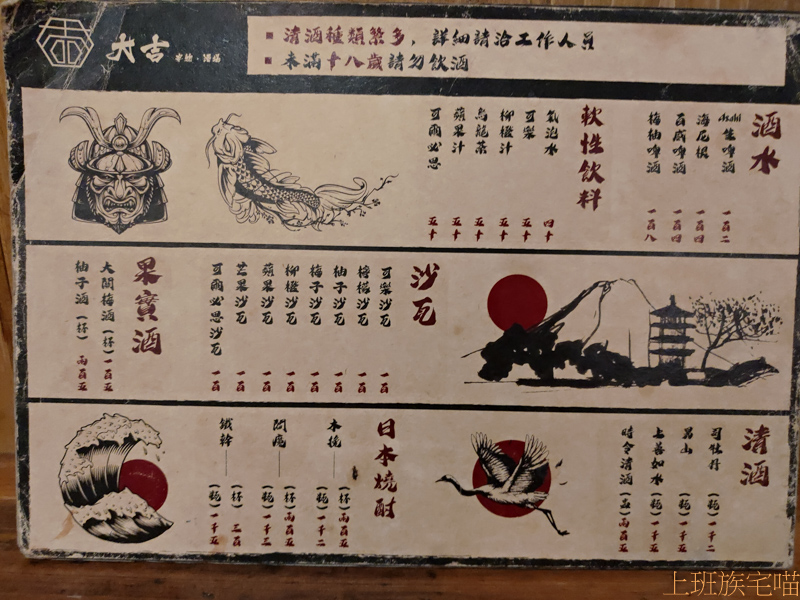 大吉
■ 清酒種類繁多，詳細請洽工作人員
■ 未滿十八歲請勿飲酒
酒水
Asahi 生啤酒 一百二
海尼根 一百四
百威啤酒 一百四
梅柚啤酒 一百八
軟性飲料
氣泡水 四十
可樂 五十
柳橙汁 五十
烏龍茶 五十
蘋果汁 五十
可爾必思 五十
沙瓦
可樂沙瓦 一百
檸檬沙瓦 一百
柚子沙瓦 一百
梅子沙瓦 一百
柳橙沙瓦 一百
蘋果沙瓦 一百
芒果沙瓦 一百
可爾必思沙瓦 一百
果實酒
大關梅酒（杯）一百五
柚子酒（杯）兩百五
清酒
司牡丹（瓶）一千二
男山（瓶）一千五
上善如水（瓶）一千五
時令清酒（壺）兩百五
日本燒酎
木挽（杯）兩百五
（瓶）一千二
（杯）兩百五
（瓶）一千三
鐵幹（杯）三百
（瓶）一千五
上班族宅喵